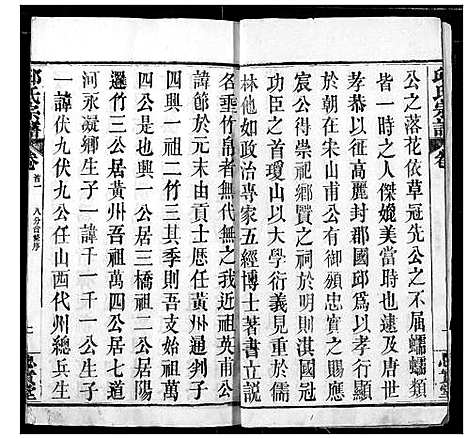 邱氏宗譜
卷
公之落花依草冠先公之不屈蠕蠕類
皆一時之人傑媲美當時也逮及唐世
孝恭以征高麗封郡國邱為以孝行顯
者在朱山甫公有御頒忠之賜應
宸公得崇祀鄉賢之祠於明淇國冠
功臣之首瓊山以大學衍義見重於儒
林他如政治專家五經博士著書立說
名垂竹帛者無代無之我近祖英甫公
諱節於元末由貢士歷任黃州通判子
四公長一祖二竹三其季則四始祖萬
四公是也興一公居三橋祖二公居陽
邏竹三公居黃州吾祖萬四公居七道
河永凝鄉生子一諱千一千一公生子
一諱伏九伏九公任山西代州總兵生
邱氏宗譜
卷
首一
八分首舊序